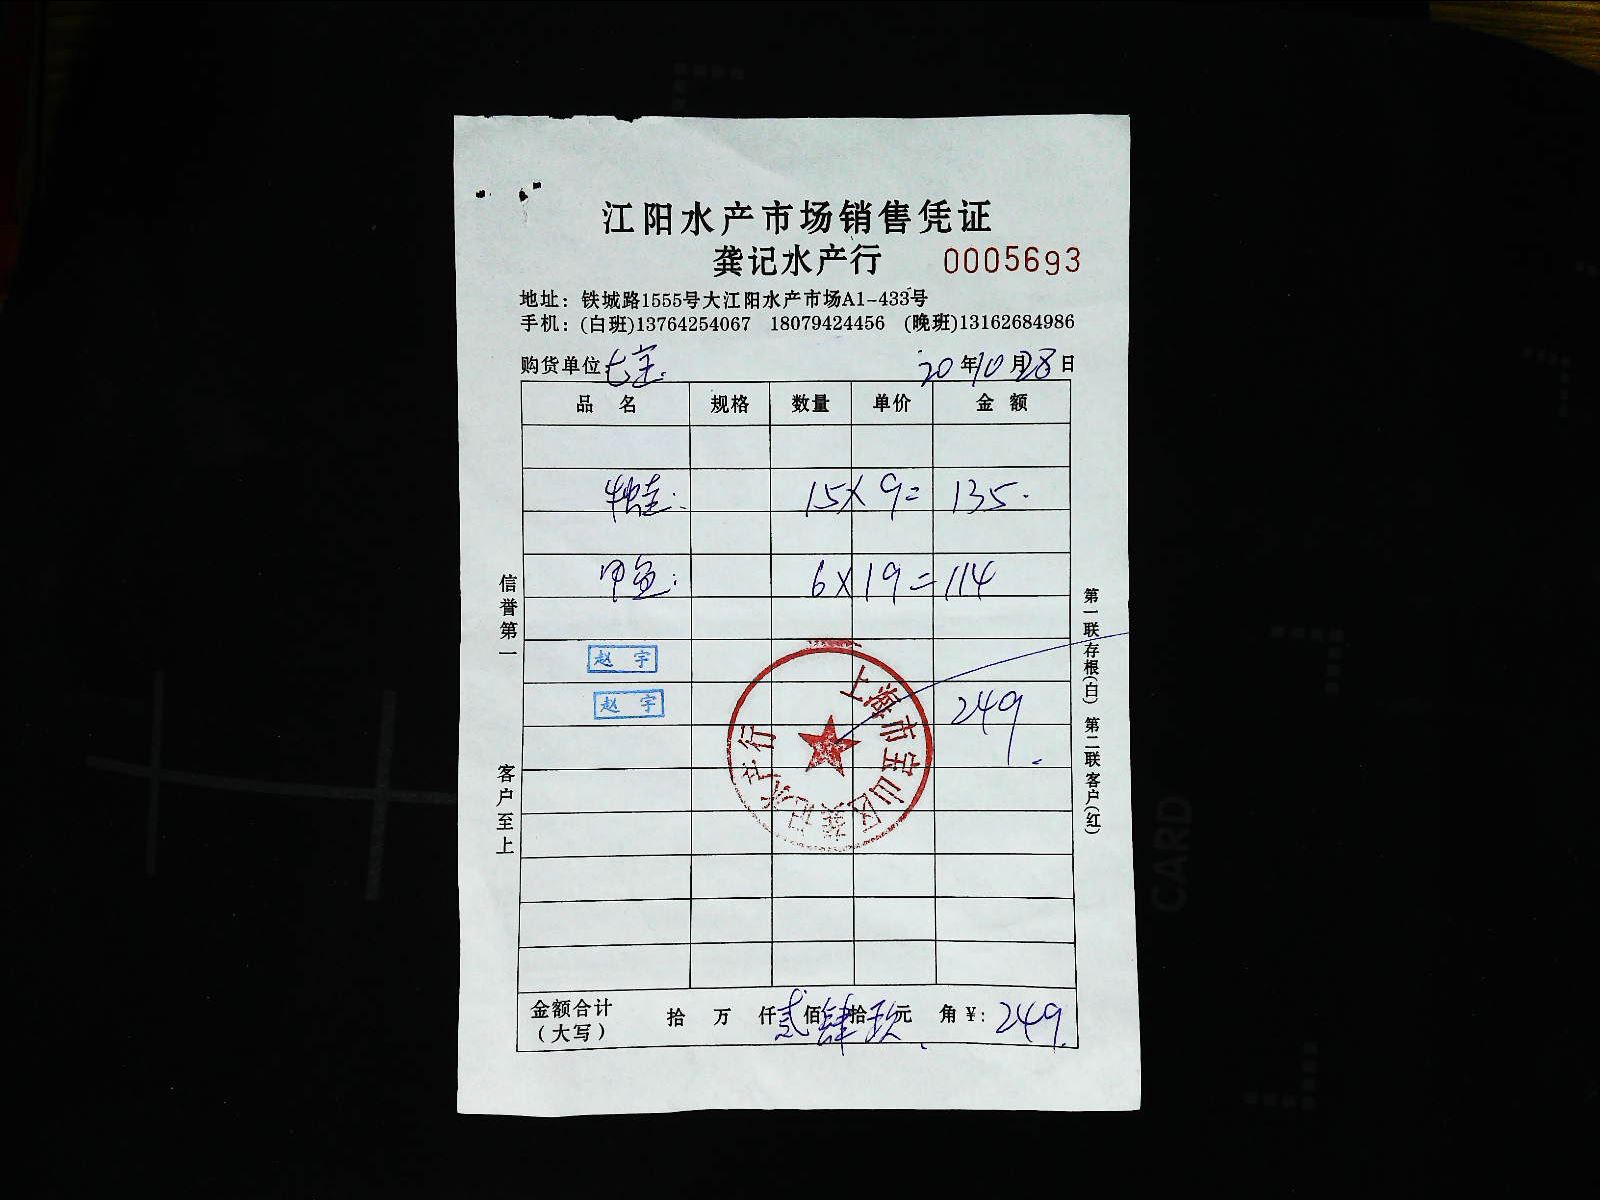 江阳水产市场销售凭证
龚记水产行 0005693
地址：铁城路1555号大江阳水产市场A1-433号
手机：(白班)13764254067 18079424456 (晚班)13162684986
购货单位 七宝. 20年10月28日
品 名 规格 数量 单价 金 额
牛蛙: 15×9= 135.
甲鱼: 6×19=114
赵 宇
赵 宇
249.
上海市宝山区龚记水产行
金额合计（大写） 拾 万 仟贰佰肆拾玖元 角￥: 249.
信誉第一 客户至上
第一联存根(白) 第二联客户(红)
CARD